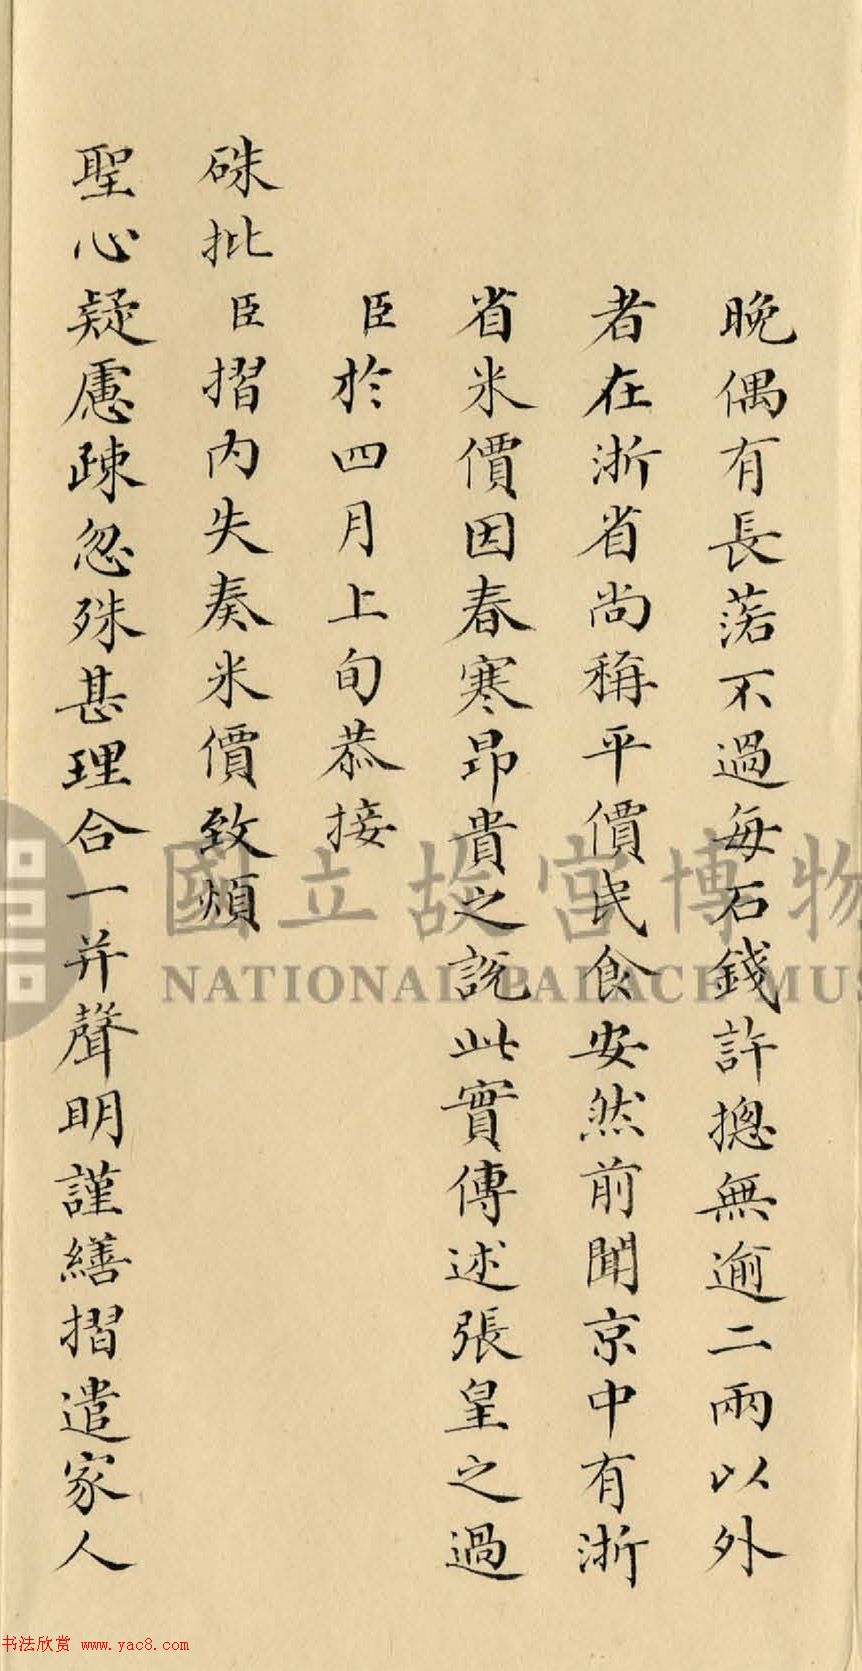 晚偶有長落不過每石錢許摠無逾二兩以外
者在浙省尚稱平價民食安然前聞京中有浙
省米價因春寒昂貴之説此實傳述張皇之過
臣於四月上旬恭接
硃批臣摺内失奏米價致煩
聖心疑慮疎忽殊甚理合一并聲明謹繕摺遣家人
國立故宮博物
NATIONAL PALACE MUS
书法欣赏 www.yac8.com